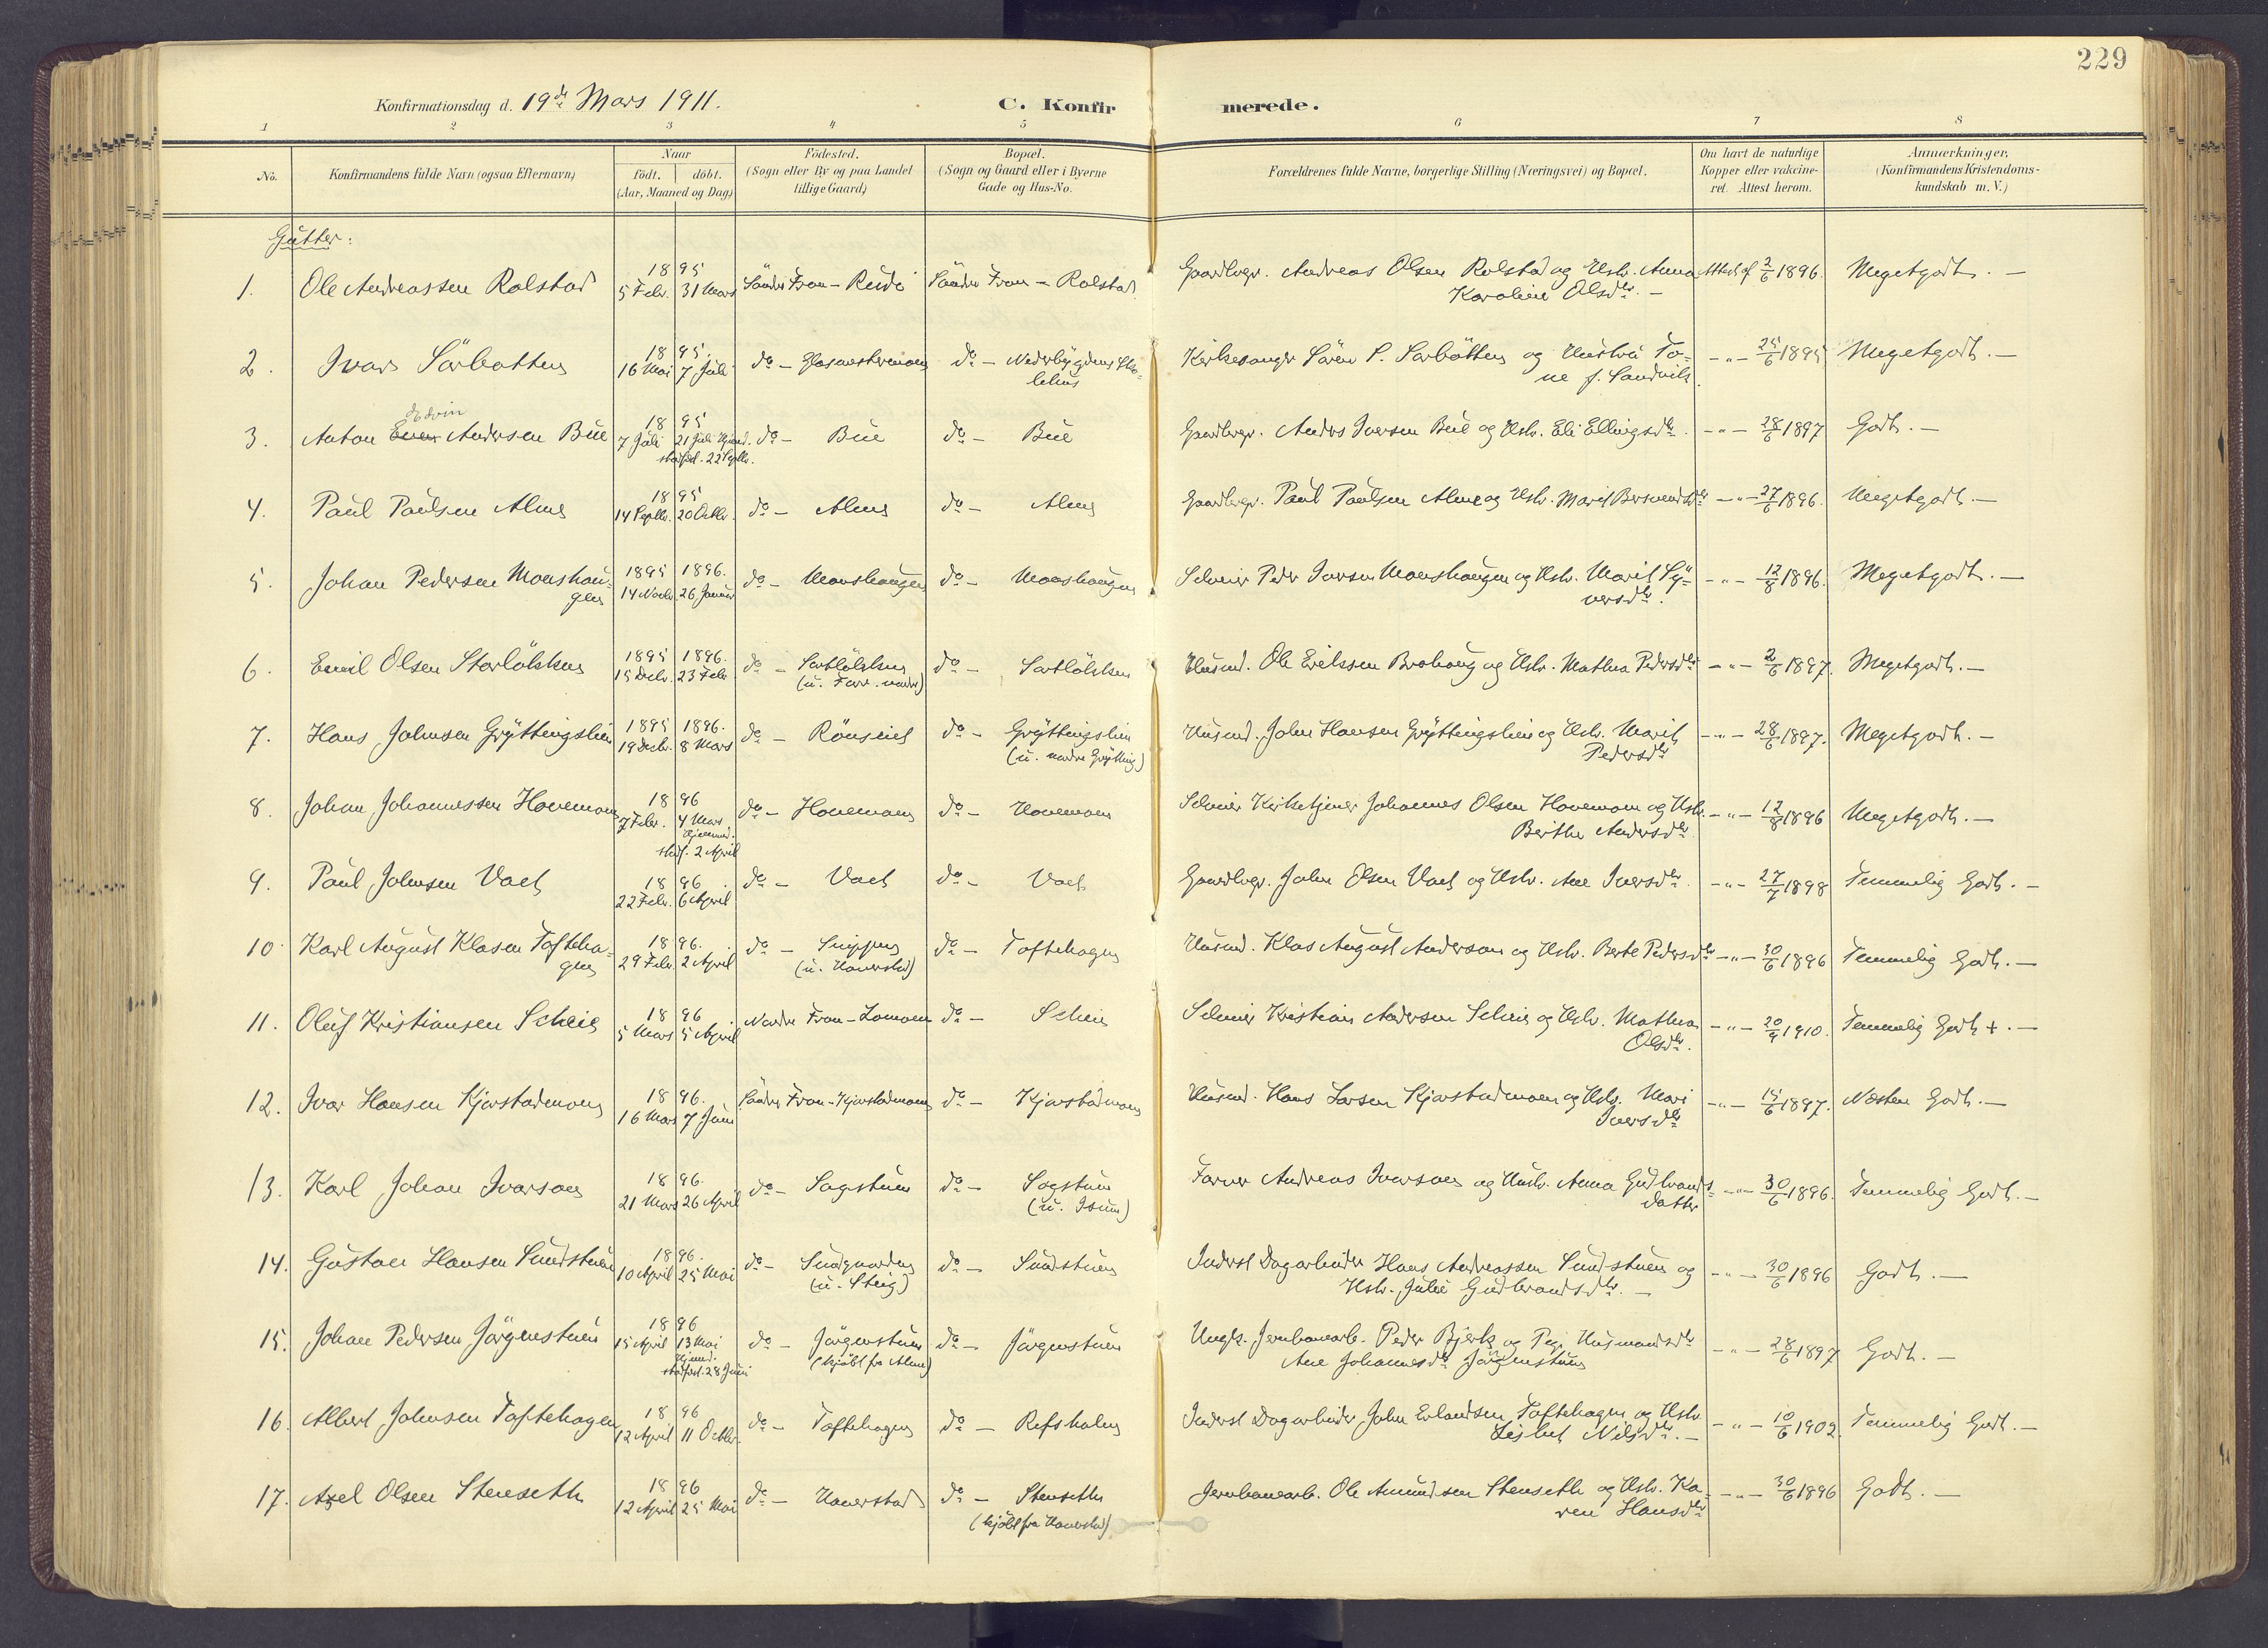 229
Konfirmationsdag d. 19de Mars 1911.
C. Konfirmerede.
1 2 3 4 5 6 7 8
No.
Konfirmandens fulde Navn (ogsaa Efternavn)
Naar
födt. döbt.
(Aar, Maaned og Dag)
Födested.
(Sogn eller By og paa Landet
tillige Gaard)
Bopæl.
(Sogn og Gaard eller i Byerne
Gade og Hus-No.
Forældrenes fulde Navne, borgerlige Stilling (Næringsvei) og Bopæl.
Om havt de naturlige
Kopper eller vakcine-
ret. Attest herom.
Anmærkninger.
(Konfirmandens Kristendoms-
kundskab m. V.)
Gutter:
1. Ole Andreassen Rolstad 1895 5 Febr. 31 Mars Söndre Fron - Rudi Söndre Fron - Rolstad Gaardbrgr. Andreas Olsen Rolstad og Hstr. Anna Attest af 2/6 1896. Megetgodt. -
Karoline Olsdtr. -
2. Ivar Sörbotten 1895. 16 Mai 7 Juli do - Glasmestermoen do - Nederbygdens Sko-
lehus
Kirkesanger Sören P. Sörbötten og Hustru To- -"- 25/6 1895 Megetgodt. -
ne f. Sandvik.
3. Anton Edvin Andersen Bue 1895 7 Juli 21 Juli Hjemd. do - Bue do - Bue Gaardbrgr. Anders Iversen Bue og Hstr. Eli Ellingsdtr. -"- 28/6 1897 Godt. -
stadf. 22 Septbr.
4. Paul Paulsen Alme 1895 14 Septbr. 20 Octbr. do - Alme do - Alme Gaardbrgr. Paul Paulsen Alme og Hstr. Marit Bersvendsdtr -"- 27/6 1896. Megetgodt. -
5. Johan Pedersen Moashau-
gen
1895 1896. 14 Novbr. 26 Januar do - Moashaugen do - Moashaugen Selveier Peder Iversen Moashaugen og Hstr. Marit Sy- -"- 12/8 1896. Megetgodt. -
versdtr.
6. Emil Olsen Storlökken 1895 1896. 15 Decbr. 23 Febr do - Sortlökken do - Sortlökken
Husmd. Ole Eriksen Brohaug og Hstr. Mathea Pedersdtr -"- 2/6 1897. Megetgodt. -
7. Hans Johnsen Gryttingslien 1895 1896. 19 Decbr. 8 Mars do - Rönseiet do - Gryttingslien
(u. nordre Grytting)
Husmd. John Hansen Gryttingslien og Hstr. Marit -"- 28/6 1897. Megetgodt. -
Pedersdtr
8. Johan Johannessen Hovemoen 1896 7 Febr. 4 Mars do - Hovemoen do - Hovemoen
Hjemmed.
stadf. 2 April
Selveier Kirketjener Johannes Olsen Hovemoen og Hstr. -"- 12/8 1896 Megetgodt. -
Berthe Andersdtr
9. Paul Johnsen Volet 1896 22 Febr. 6 April do - Volet do - Volet Gaardbrgr. John Olsen Volet og Hstr. Ane Iversdtr. -"- 27/7 1898 Temmelig Godt. -
10. Karl August Klasen Tofteha-
gen
1896. 29 Febr. 2 April do - Snippen
(u. Haverstad)
do - Toftehagen
Husmd. Klas August Anderson og Hstr. Berte Pedersdtr -"- 30/6 1896 Temmelig Godt. -
11. Oluf Kristiansen Scheie 1896. 5 Mars 5 April Nordre Fron - Lomoen do - Scheie
Selveier Kristian Andersen Scheie og Hstr. Mathea -"- 20/9 1910. Temmelig Godt +. -
Olsdtr.
12. Ivar Hansen Kjorstadmoen 1896. 16 Mars 7 Juni Söndre Fron - Kjorstadmoen do - Kjorstadmoen
Husmd. Hans Larsen Kjorstadmoen og Hstr. Mari -"- 15/6 1897. Næsten Godt. -
Iversdtr
13. Karl Johan Ivarson 1896. 21 Mars 26 April do - Sagstuen do - Sagstuen
(u. Isum)
Farver Andreas Ivarson og Hustr. Anna Gudbrands- -"- 30/6 1896. Temmelig Godt. -
datter
14. Gustav Hansen Sundstuen 1896. 10 April 25 Mai do - Sundgaarden
(u. Steig)
do - Sundstuen
Inderst Dagarbeider Hans Andreassen Sundstuen og -"- 30/6 1896 Godt. -
Hstr. Julie Gudbrandsdtr. -
15. Johan Pedersen Jörgenstuen 1896 15 April 13 Mai
Hjemd.
stadfæst. 28 Juni
do - Jörgenstuen
(kjöbt fra Alme)
do - Jörgenstuen
Ungk. Jernbanearb. Peder Bjerk og Pige Husmandsdtr -"- 28/6 1897 Godt. -
Ane Johannesdtr Jörgenstuen
16. Albert Johnsen Toftehagen 1896 12 April 11 Octbr. do - Toftehagen do - Refsholen
Inderst Dagarbeider John Erlandsen Toftehagen og Hstr -"- 10/6 1902. Temmelig Godt. -
Lisbet Nilsdtr. -
17. Axel Olsen Stenseth 1896 12 April 25 Mai do - Haverstad do - Stenseth
(kjöbt fra Haverstad)
Jernbanearb. Ole Amundsen Stenseth og Hstr. Ka- -"- 30/6 1896 Godt. -
ren Hansdtr